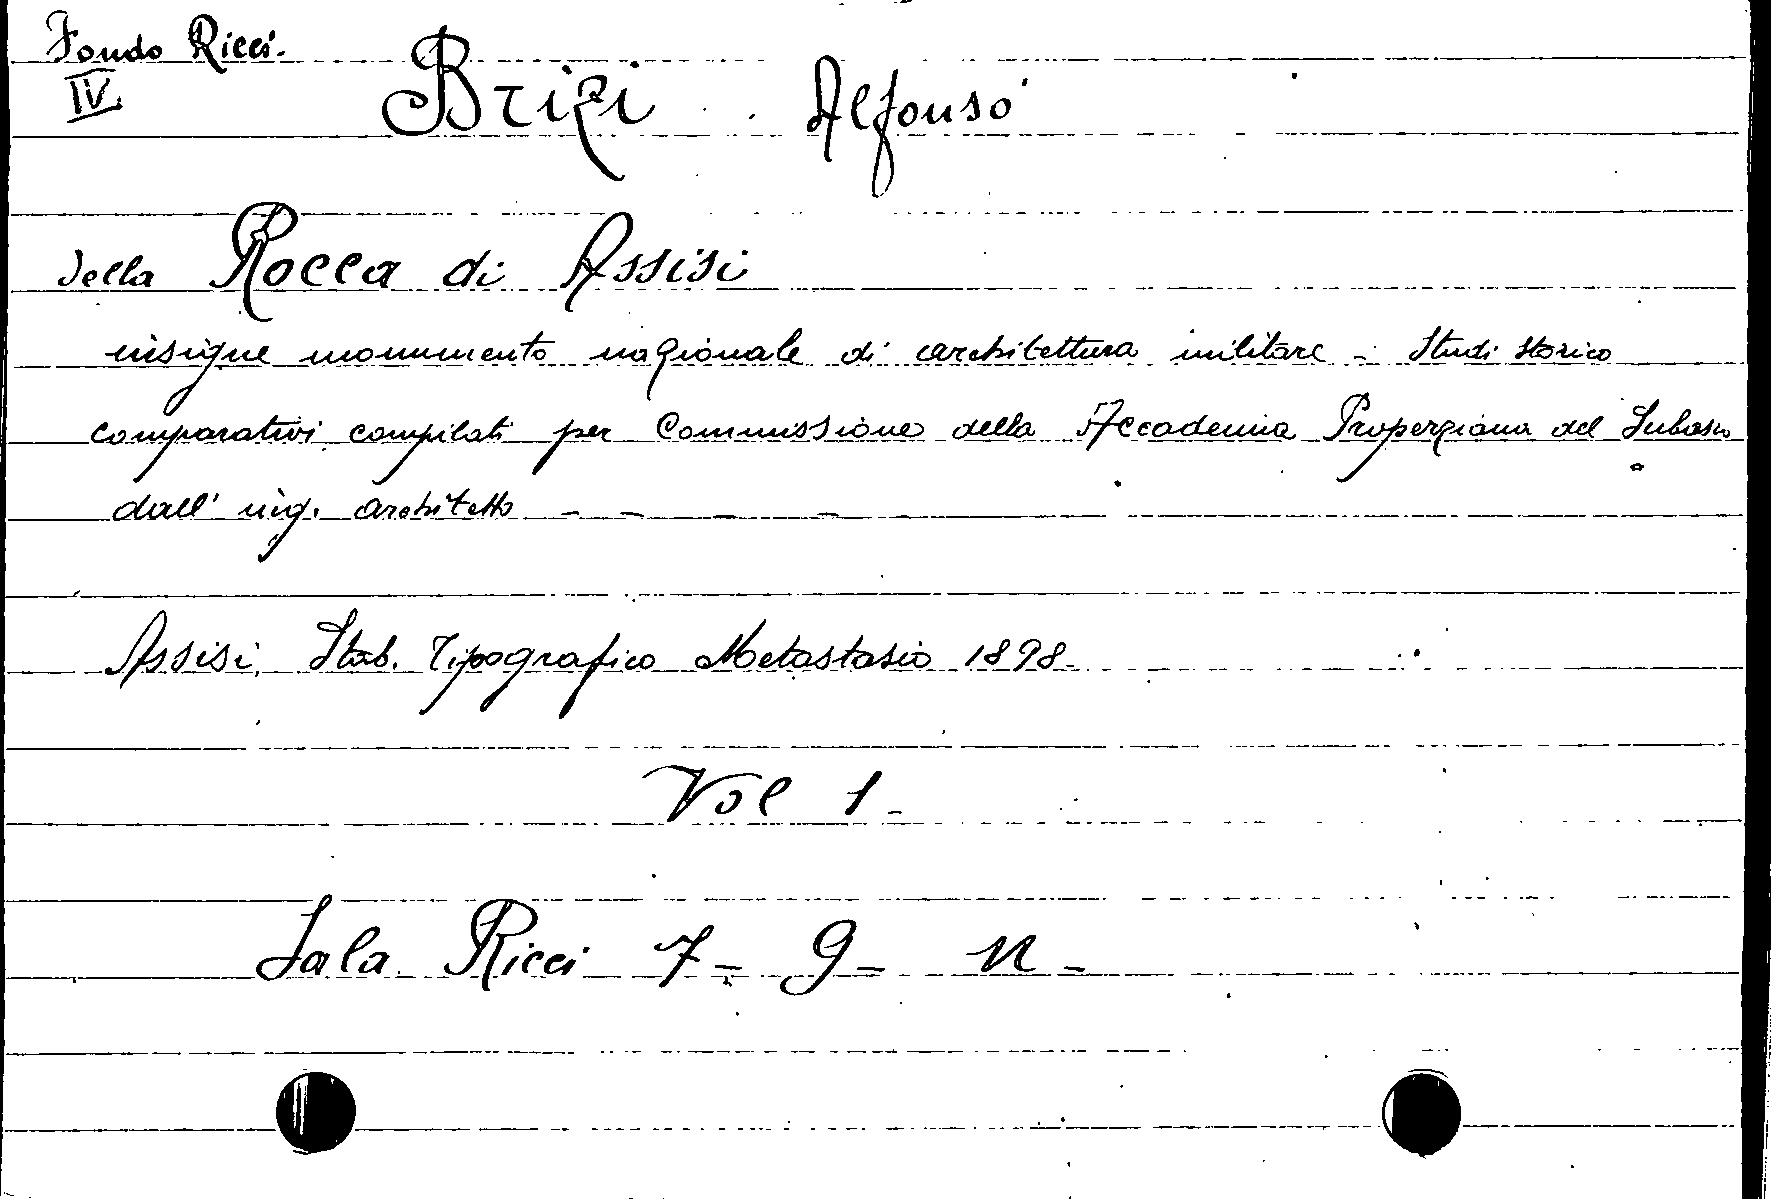 Fondo Ricci.
IV
Brizi Alfonso
della Rocca di Assisi
insigne monumento nazionale di architettura militare - Studi storico
comparativi compilati per Commissione della Accademia Properziana del Subasio
dall' ing. architetto - - - -
Assisi, Stab. Tipografico Metastasio 1898.
Vol 1 -
Sala Ricci 7 - 9 - n -